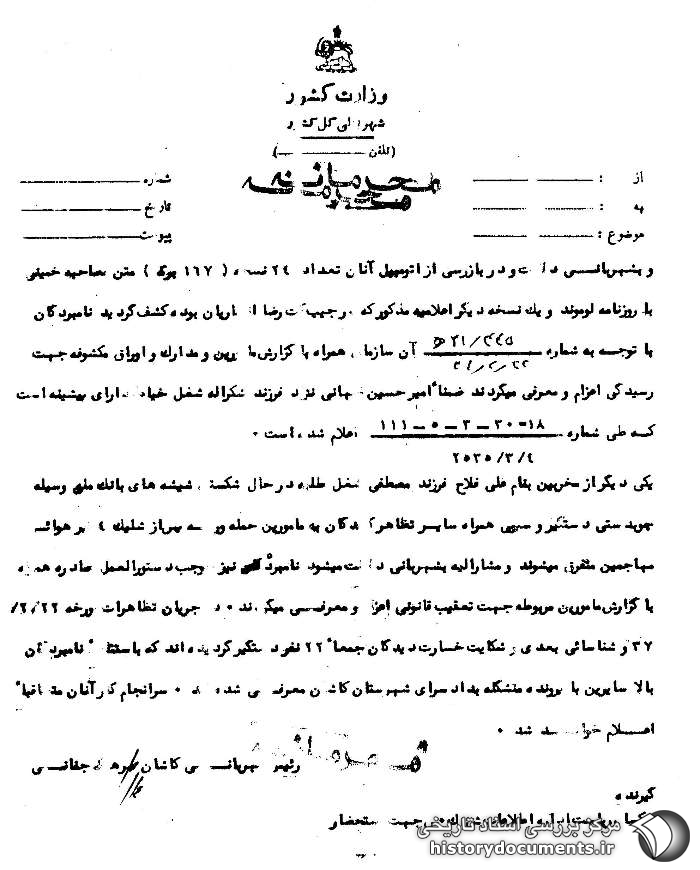 وزارت کشور
شهربانی کل کشور
(تلفن)
محرمانه
محرمانه
از :
شماره
به :
تاریخ
موضوع :
پیوست
و بشهربانی و در بازرسی از اتومبیل آنان تعداد ۲۴ نسخه ( ۱۶۷ برگ ) متن مصاحبه خمینی
با روزنامه لوموند و یك نسخه دیگر اعلامیه مذکور که در جیب کت رضا انصاریان بوده کشف گردید نامبردگان
با توجه به شماره آن سازمان همراه با گزارش مامورین و مدارك و اوراق مکشوفه جهت
رسیدگی اعزام و معرفی میگردند ضمنا" امیر حسین فرزند شکراله شغل خیاط دارای پیشینه است
که طی شماره ۱۸-۳۰-۳-۵-۱۱۱ اعلام شده است ۰
۲۵۳۵/۳/۴
یکی دیگر از مخربین بنام علی فلاح فرزند مصطفی شغل طلبه در حال شکستن شیشه های بانك ملی وسیله
چوبدستی دستگیر و سپس همراه سایر تظاهر کنندگان به مامورین حمله ور پس از شلیك ٤ تیر هوائی
مهاجمین متفرق میشوند و مشارالیه بشهربانی میشود نامبرده نیز دستورالعمل صادره همراه
با گزارش مامورین مربوطه جهت تعقیب قانونی اعزام و معرفی میگردند ۰ در جریان تظاهرات مورخه ۲/۲۲/
۳۷ و شناسائی بعدی و شکایت خسارت دیدگان جمعا" ۲۲ نفر دستگیر گردیده اند که باستثنا نامبردگان
بالا سایرین با پرونده متشکله بدادسرای شهرستان کاشان معرفی شده اند ۰ سرانجام کار آنان متعاقبا"
اعلام خواهد شد ۰
محرمانه
رئیس شهربانی کاشان
گیرنده
جهت استحضار
مرکز بررسی اسناد تاریخی
historydocuments.ir